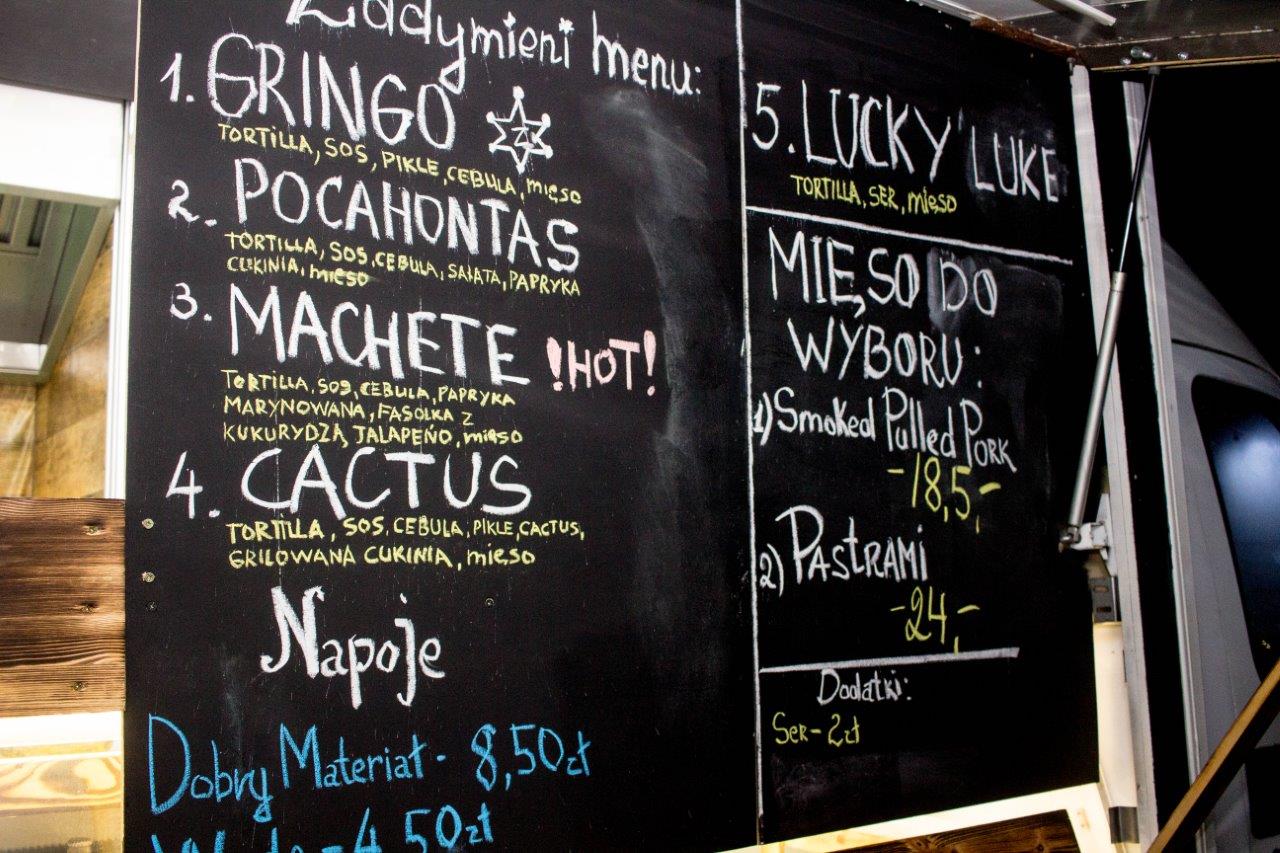 Zadymieni menu:
1. GRINGO
TORTILLA, SOS, PIKLE, CEBULA, mięso
2. POCAHONTAS
TORTILLA, SOS, CEBULA, SAŁATA, PAPRYKA
CUKINIA, mięso
3. MACHETE !HOT!
TORTILLA, SOS, CEBULA, PAPRYKA
MARYNOWANA, FASOLKA Z
KUKURYDZĄ, JALAPEÑO, mięso
4. CACTUS
TORTILLA, SOS, CEBULA, PIKLE, CACTUS,
GRILOWANA CUKINIA, mięso
Napoje
Dobry Materiał - 8,50zł
Woda - 4,50zł
5. LUCKY LUKE
TORTILLA, SER, mięso
MIĘSO DO
WYBORU:
1) Smoked Pulled Pork
-18,5,-
2) PASTRAMI
-24,-
Dodatki:
Ser - 2zł